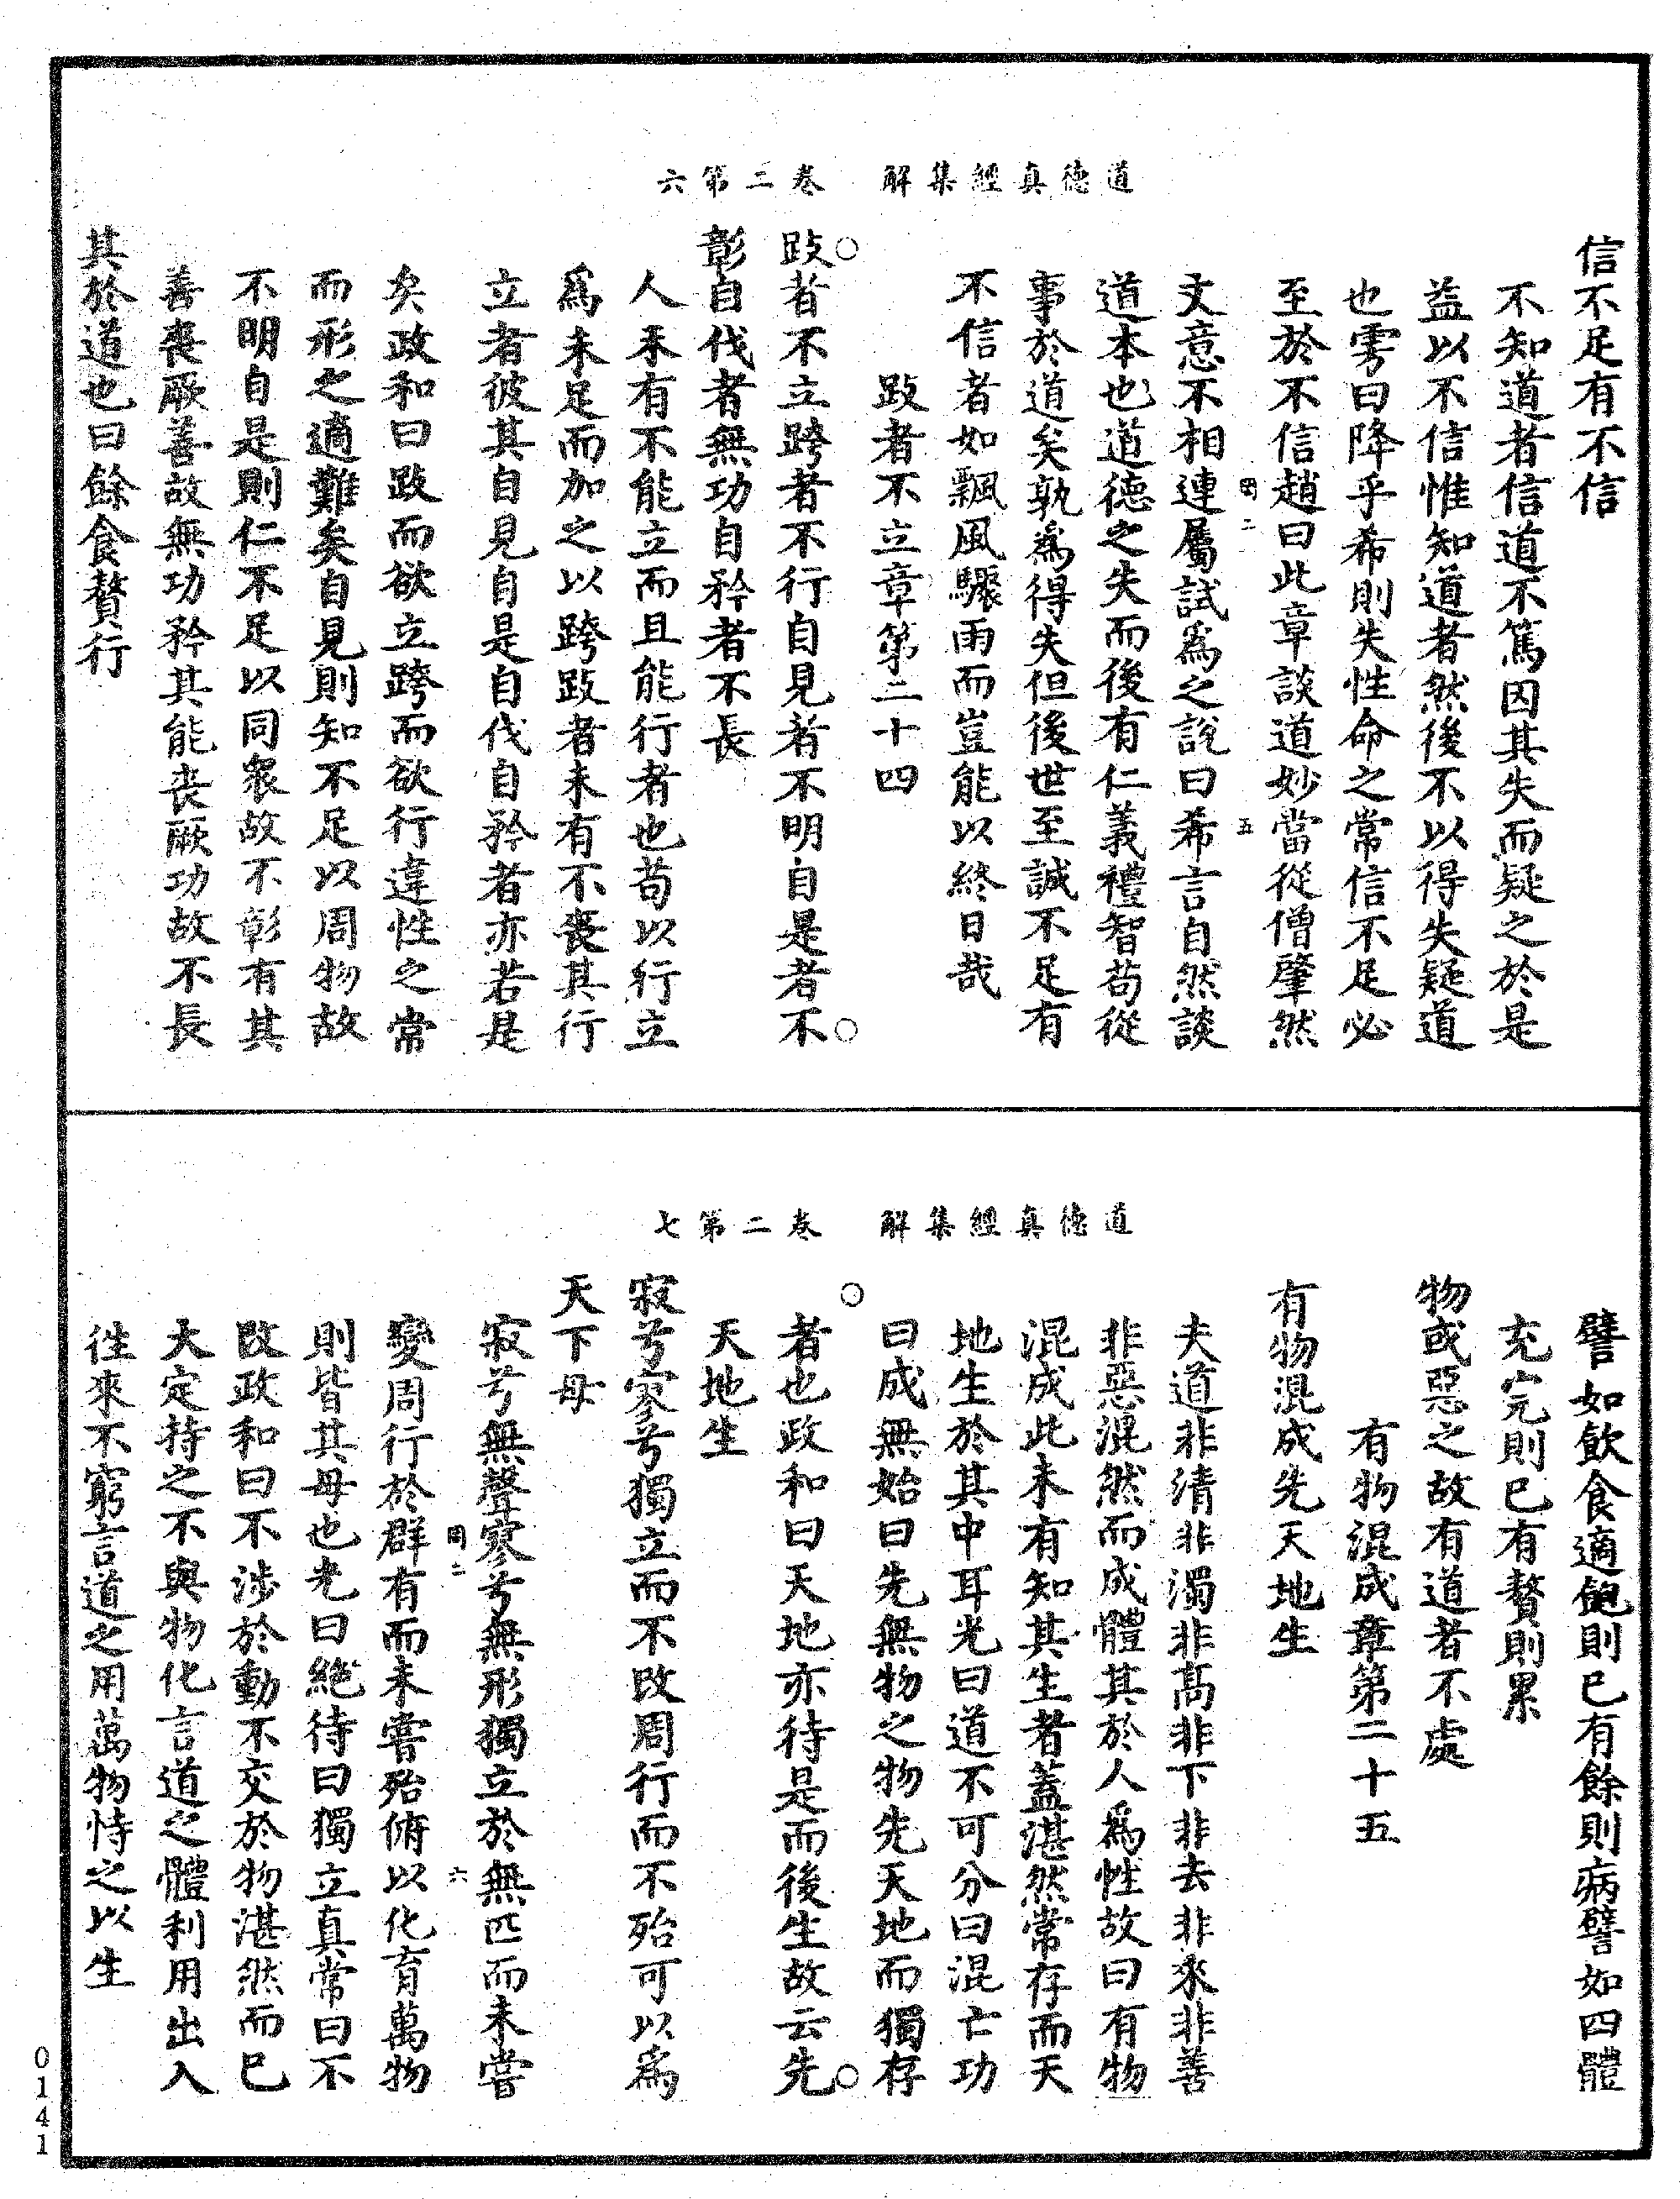 道德真經集解 卷二第六
信不足有不信
不知道者信道不篤因其失而疑之於是
益以不信惟知道者然後不以得失疑道
也雱曰降乎希則失性命之常信不足必
至於不信趙曰此章談道妙當從僧肇然
罔二 五
文意不相連屬試爲之說曰希言自然談
道本也道德之失而後有仁義禮智苟從
事於道矣孰爲得失但後世至誠不足有
不信者如飄風驟雨而豈能以終日哉
跂者不立章第二十四
跂者不立跨者不行自見者不明自是者不
彰自伐者無功自矜者不長
人未有不能立而且能行者也苟以行立
爲未足而加之以跨跂者未有不喪其行
立者彼其自見自是自伐自矜者亦若是
矣政和曰跂而欲立跨而欲行違性之常
而形之適難矣自見則知不足以周物故
不明自是則仁不足以同衆故不彰有其
善喪厥善故無功矜其能喪厥功故不長
其於道也曰餘食贅行
道德真經集解 卷二第七
譬如飲食適飽則已有餘則病譬如四體
充完則已有贅則累
物或惡之故有道者不處
有物混成章第二十五
有物混成先天地生
夫道非清非濁非高非下非去非來非善
非惡混然而成體其於人爲性故曰有物
混成此未有知其生者蓋湛然常存而天
地生於其中耳光曰道不可分曰混亡功
曰成無始曰先無物之物先天地而獨存
者也政和曰天地亦待是而後生故云先
天地生
寂兮寥兮獨立而不改周行而不殆可以爲
天下母
寂兮無聲寥兮無形獨立於無匹而未嘗
罔二 六
變周行於群有而未嘗殆俯以化育萬物
則皆其母也光曰絕待曰獨立真常曰不
改政和曰不涉於動不交於物湛然而已
大定持之不與物化言道之體利用出入
徃來不窮言道之用萬物恃之以生
0141